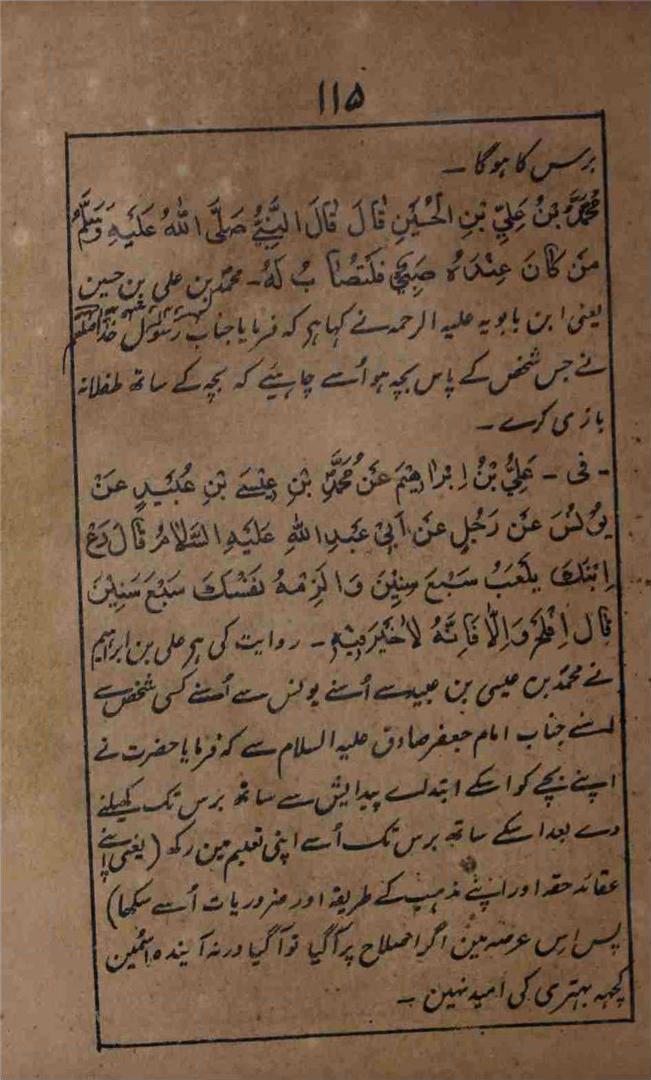 ۱۱۵
برس کا ہوگا ۔
مُحَمَّدُ بْنُ عَلِيِّ بْنِ الْحُسَيْنِ قَالَ قَالَ النَّبِيُّ صَلَّى اللهُ عَلَيْهِ وَسَلَّمَ
مَنْ كَانَ عِنْدَهُ صَبِيٌّ فَلْيَتَصَابَ لَهُ ۔ محمد بن علی بن حسین
یعنی ابن بابویہ علیہ الرحمہ نے کہا ہے کہ فرمایا جناب رسول خدا صلعم
نے جس شخص کے پاس بچہ ہو اُسے چاہیئے کہ بچہ کے ساتھ طفلانہ
بازی کرے ۔
۔ فی ۔ عَلِيُّ بْنُ اِبْرَاهِيْمَ عَنْ مُحَمَّدِ بْنِ عِيْسٰے بْنِ عُبَيْدٍ عَنْ
يُوْنُسَ عَنْ رَجُلٍ عَنْ اَبِيْ عَبْدِ اللهِ عَلَيْهِ السَّلَامُ قَالَ دَعْ
اِبْنَكَ يَلْعَبُ سَبْعَ سِنِيْنَ وَالْزِمْهُ نَفْسَكَ سَبْعَ سِنِيْنَ
قَالَ اِفْلَحَ وَاِلَّا فَاِنَّهُ لَاخَيْرَ فِيْهِ ۔ روایت کی ہے علی بن ابراہیم
نے محمد بن عیسی بن عبید سے اُسنے یونس سے اُسنے کسی شخص سے
اُسنے جناب امام جعفر صادق علیہ السلام سے کہ فرمایا حضرت نے
اپنے بچے کو اسکے ابتداے پیدایش سے سات برس تک کھیلنے
دے بعد اسکے سات برس تک اُسے اپنی تعلیم مین رکھ (یعنی اپنے
عقائد حقہ اور اپنے مذہب کے طریقہ اور ضروریات اُسے سکھا)
پس اس عرصہ مین اگر اصلاح پر آگیا تو آگیا ورنہ آیندہ اسمین
کچھہ بہتری کی امید نہین ۔